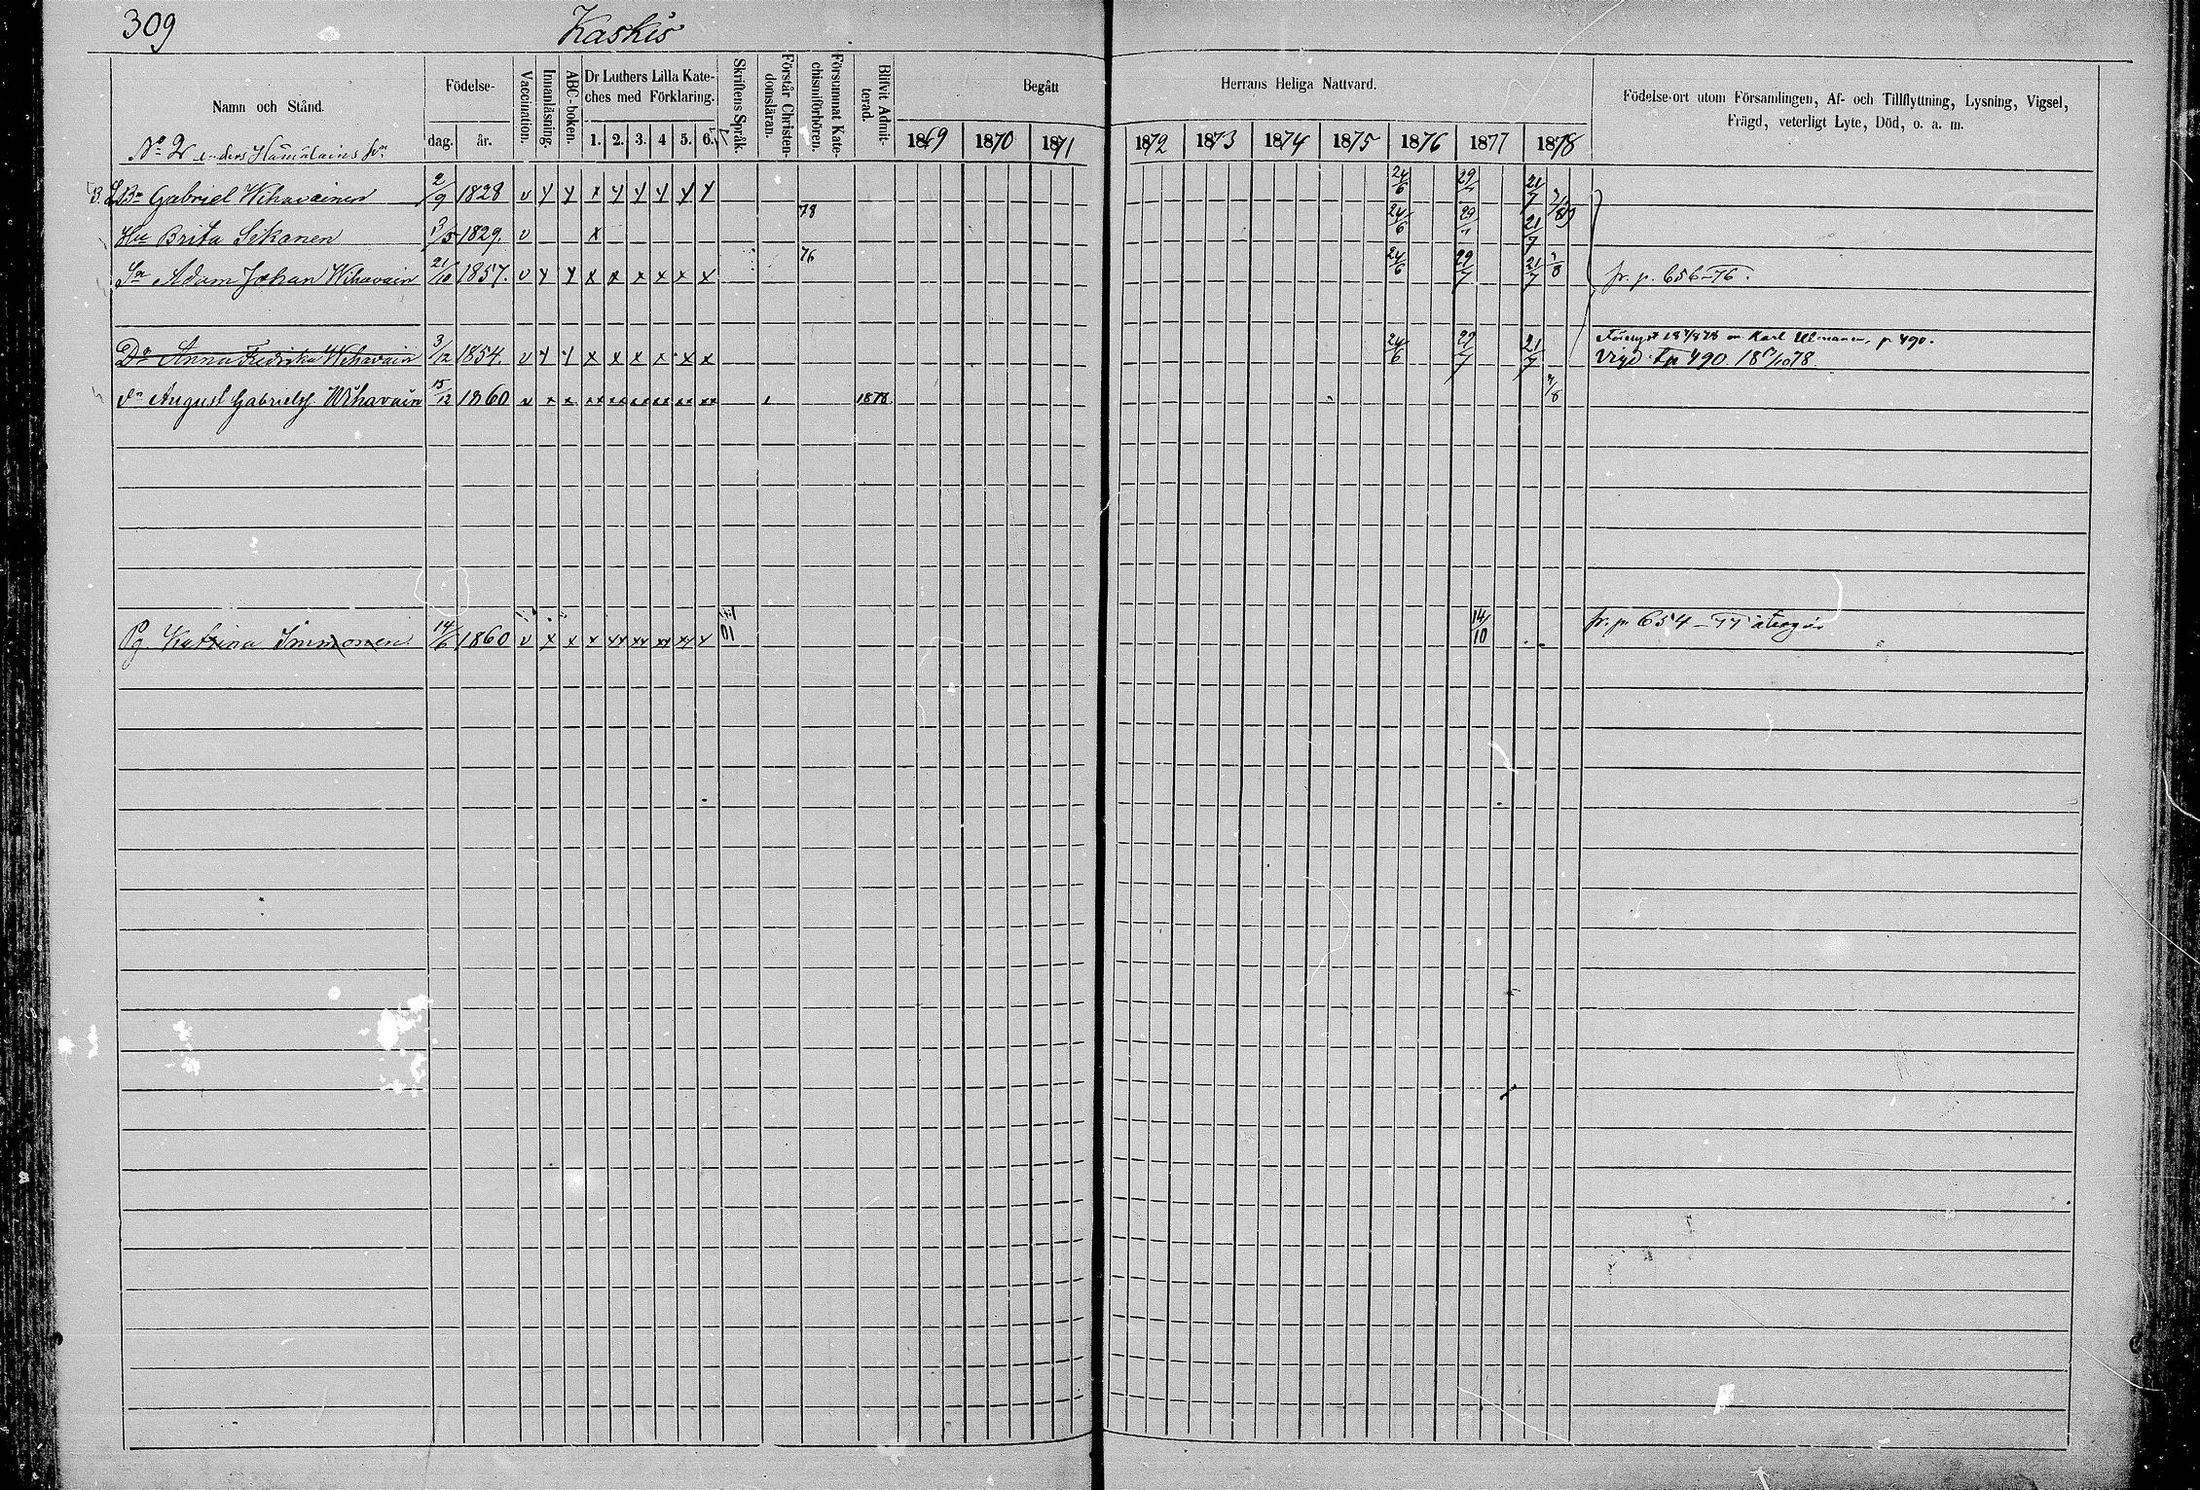 309 Kaskis
Namn och Stånd.
Födelse-
dag. år.
Vaccination.
Innanläsning.
ABC-boken.
Dr Luthers Lilla Kate-
ches med Förklaring.
1. 2. 3. 4 5. 6.
Skriftens Språk.
Förstår Christen-
domsläran.
Försummat Kate-
chismiförhören.
Blifvit Admit-
terad.
Begått Herrans Heliga Nattvard.
1869 1870 1871 1872 1873 1874 1875 1876 1877 1878
Födelse-ort utom Församlingen, Af- och Tillflyttning, Lysning, Vigsel,
Frägd, veterligt Lyte, Död, o. a. m.
No 2
Gabriel Wihavainen 2/9 1828 v y y x y y y y y 24/6 21/7
Hu Brita Sikanen 3/5 1829. v x 78 24/6 21/7
Sn Adam Johan Wihavain 21/10 1857. v y y x x x x x x 76 24/6 29/7 21/7 fr. p. 656-76.
Dr Anna Fredrika Wihavain 3/12 1854. v y y x x x x x x 24/6 29/7 21/7 Karl Ullmanen, p 490.
Vigd 490.
Sn August Gabrielsf Wihavain 15/12 1860 1878
Pg. Katrina Immonen 14/6 1860 v x x x xx xx xx xy y 14/10 fr. p. 654-77